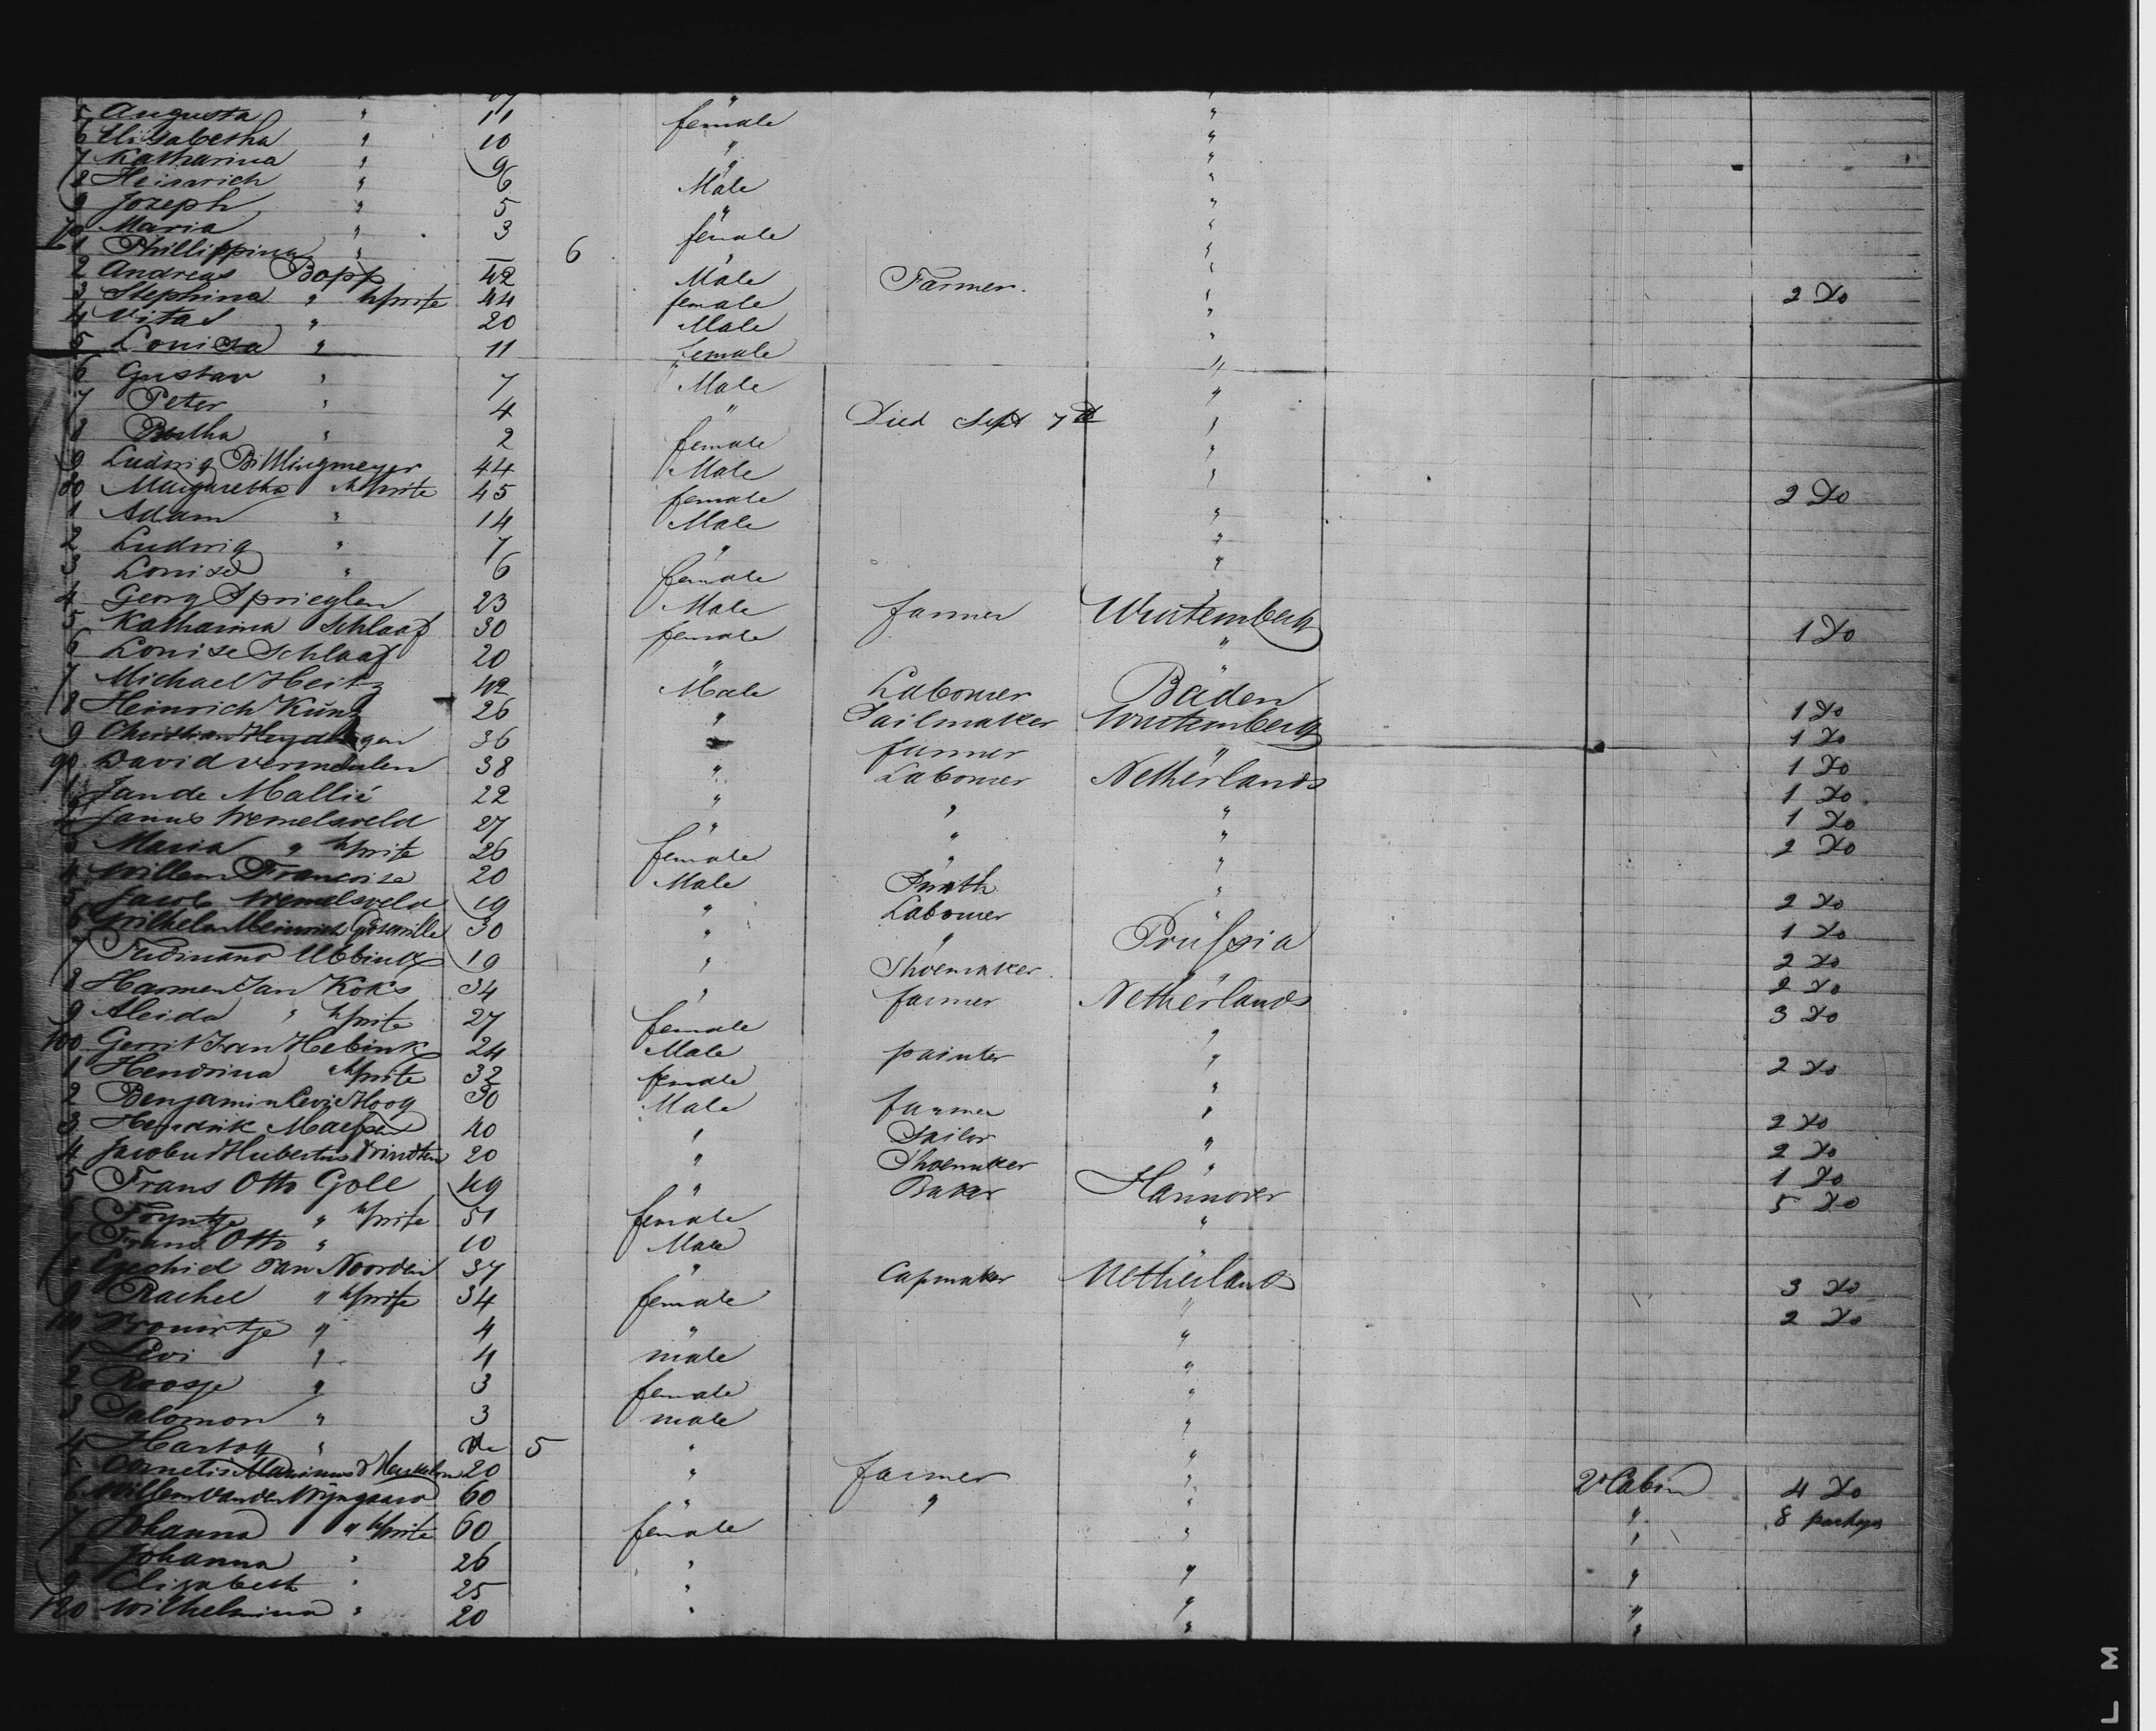 5 Augusta " 11 female "
6 Elisabetha " 10 " "
7 Katharina " 9 " "
8 Heinrich " 6 Male "
9 Joseph " 5 " "
70 Maria " 3 female "
1 Phillippina " 6 " "
2 Andreas Bopp 42 Male Farmer. " 2 Do
3 Stephina " h wife 44 female "
4 Vital " 20 Male "
5 Louisa " 11 female "
6 Gustav " 7 Male "
7 Peter " 4 " Died Sept 7th "
8 Bertha " 2 female "
9 Ludwig Bittlingmeyer 44 Male " 2 Do
80 Margaretha h wife 45 female "
1 Adam " 14 Male "
2 Ludwig " 7 " "
3 Louise " 6 female "
4 Georg Sprieglen 23 Male farmer Wurtemberg 1 Do
5 Katharina Schlaaf 30 female "
6 Louise Schlaaf 20 " "
7 Michael Heitz 42 Male Labourer Baden 1 Do
8 Heinrich Kunz 26 " Sailmaker Wurtemberg 1 Do
9 Christian 36 " farmer " 1 Do
90 David Vermeulen 38 " Labourer Netherlands 1 Do
1 Jan de Mallié 22 " " " 1 Do
2 Janus Wemelsveld 27 " " " 2 Do
3 Maria " h wife 26 female " "
4 Willem Francoise 20 Male Smith " 2 Do
5 Jacob Wemelsveld 19 " Labourer " 1 Do
6 Wilhelm Heinrich 30 " " Prussia 2 Do
7 Ferdinand Ubbink 19 " Shoemaker " 2 Do
8 Harmen Jan Koks 34 " farmer Netherlands 3 Do
9 Aleida " h wife 27 female "
100 Gerrit Jan Hebink 24 Male painter " 2 Do
1 Hendrina h wife 32 female "
2 Benjamin Levie Hoog 30 Male farmer " 2 Do
3 Hendrik 40 " Sailor " 2 Do
4 Jacobus Hubertus 20 " Shoemaker " 1 Do
5 Frans Otto Goll 49 " Baker Hannover 5 Do
6 Fryntje " h wife 51 female "
7 Frans Otto " 10 Male "
8 Ezechiel van Noorden 37 " Capmaker Netherlands 3 Do
9 Rachel " h wife 34 female " 2 Do
110 Vrouwtje " 4 " "
1 Levi " 4 male "
2 Roosje " 3 female "
3 Salomon " 3 male "
4 Hartog " 5 " "
5 Cornelis Marinus 20 " farmer " 2d Cabin 4 Do
6 Willem van den Wyngaard 60 " " " " 8 packages
7 Johanna " h wife 60 female " "
8 Johanna " 26 " " "
9 Elizabeth " 25 " " "
120 Wilhelmina " 20 " " "
L M